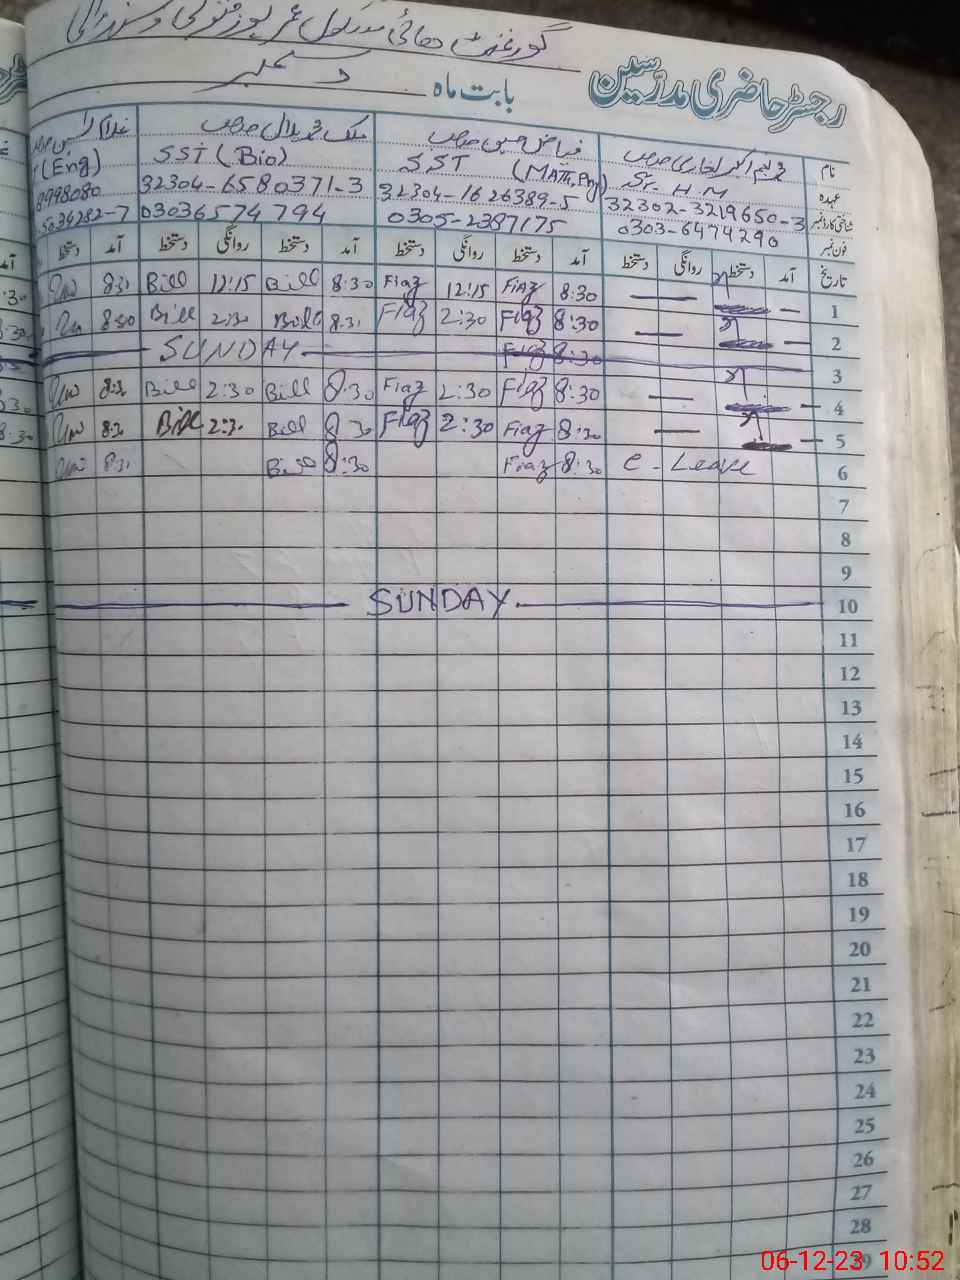 گورنمنٹ ھائی سکول
رجسٹر حاضری مدرسین
بابت ماہ دسمبر
نام
فیاض حسین صاحب
ملک محمد بلال صاحب
غلام
عہدہ Sr. H.M
SST (Math, Phy)
SST (Bio)
(Eng)
شناختی کارڈ نمبر 32302-3219650-3
32304-1626389-5
32304-6580371-3
8998080
فون نمبر 0303-6474290
0305-2387175
03036574794
تاریخ آمد دستخط روانگی دستخط آمد دستخط روانگی دستخط آمد دستخط روانگی دستخط آمد دستخط
1 — — 8:30 Fiaz 12:15 Fiaz 8:30 Bill 12:15 Bill 8:31
2 — — 8:30 Fiaz 2:30 Fiaz 8:31 Bill 2:30 Bill 8:30
3 8:30 Fiaz SUNDAY
4 — — 8:30 Fiaz 2:30 Fiaz 8:30 Bill 2:30 Bill 8:30
5 — — 8:30 Fiaz 2:30 Fiaz 8:30 Bill 2:30 Bill 8:30
6 C - Leave 8:30 Fiaz 8:30 Bill 8:31
7
8
9
10 SUNDAY
11
12
13
14
15
16
17
18
19
20
21
22
23
24
25
26
27
28
29
06-12-23 10:52